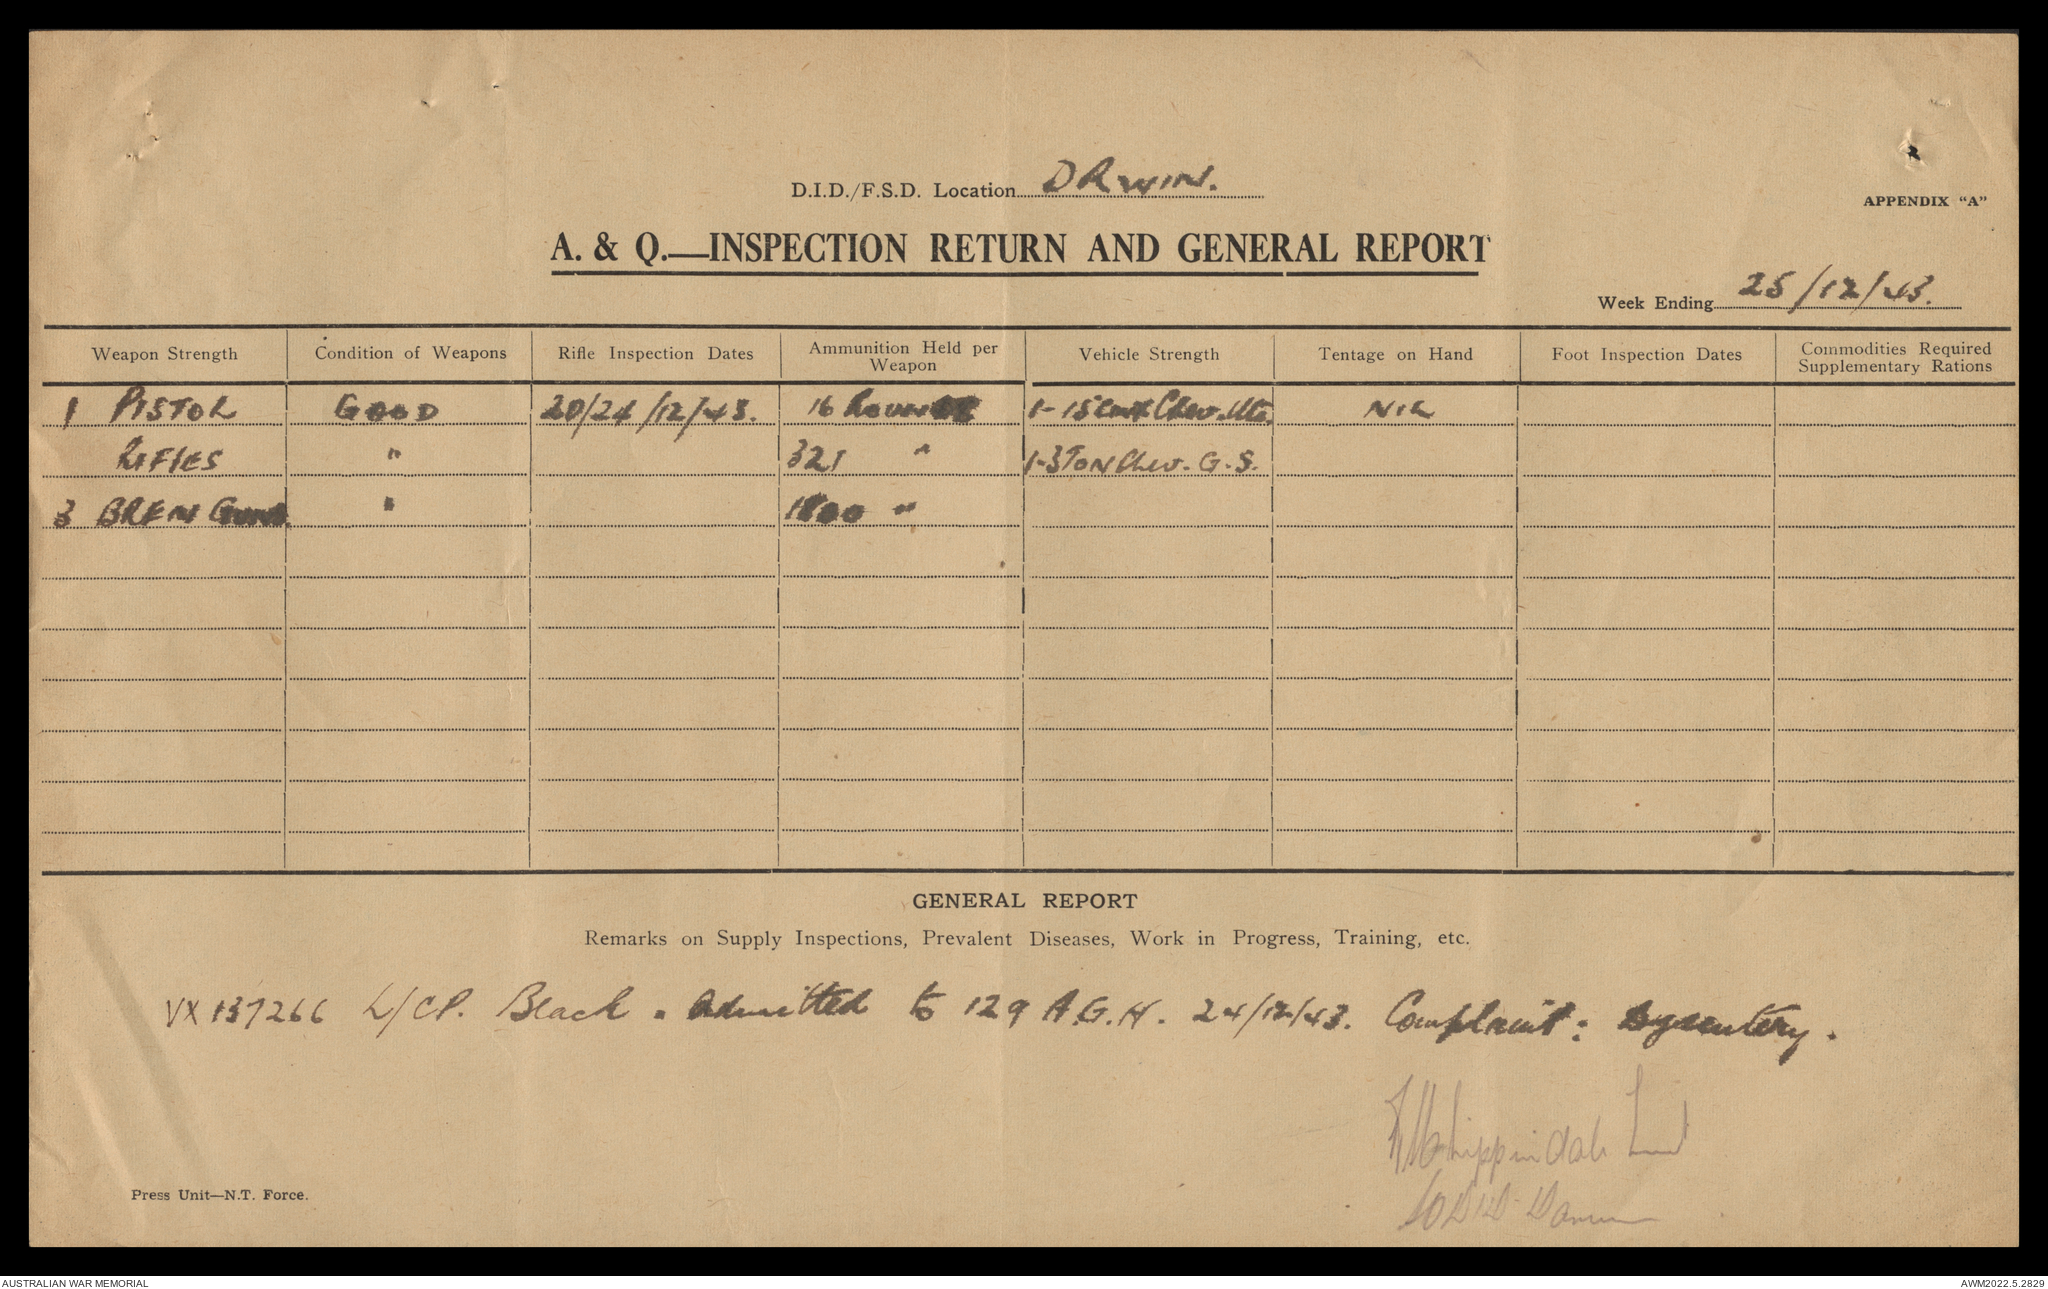 D.I.D./F.S.D. Location DRWIN.
APPENDIX "A"
A. & Q.—INSPECTION RETURN AND GENERAL REPORT
Week Ending 25/12/43.
Weapon Strength Condition of Weapons Rifle Inspection Dates Ammunition Held per Weapon Vehicle Strength Tentage on Hand Foot Inspection Dates Commodities Required Supplementary Rations
1 PISTOL GOOD 20/24/12/43. 16 Rounds 1-15cwt Chev. Ute. NIL
RIFLES " 321 " 1-3TON Chev. G.S.
3 BREN Guns. " 1800 "
GENERAL REPORT
Remarks on Supply Inspections, Prevalent Diseases, Work in Progress, Training, etc.
VX137266 L/CP. Black. Admitted to 129 A.G.H. 24/12/43. Complaint: Dysentery.
Whippindale Lieut
Press Unit—N.T. Force.
AUSTRALIAN WAR MEMORIAL
AWM2022.5.2829